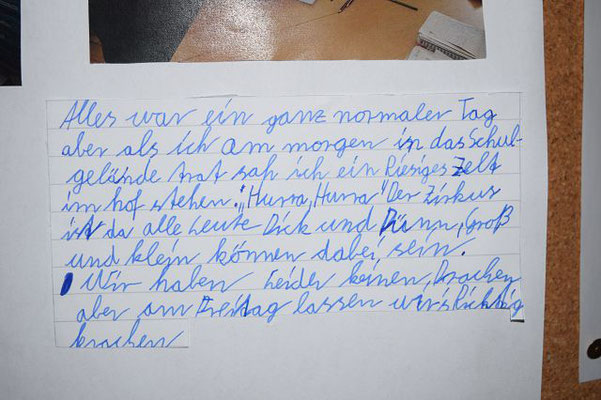 Alles war ein ganz normaler Tag
aber als ich am morgen in das Schul-
gelände trat sah ich ein Riesiges Zelt
im hof stehen. "Hurra, Hurra" Der Zirkus
ist da alle Leute Dick und Dünn, Groß
und klein können dabei sein.
Wir haben Leider keinen Drachen
aber am Freitag lassen wir's Richtig
krachen